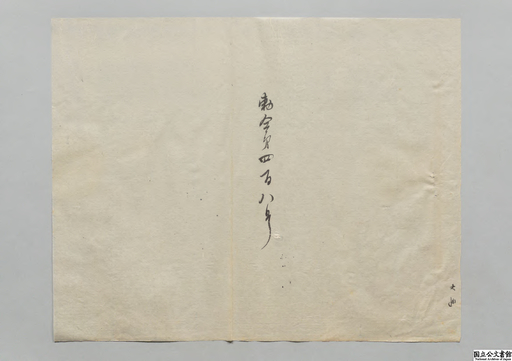 勅令第四百八号
国立公文書館
National Archives of Japan